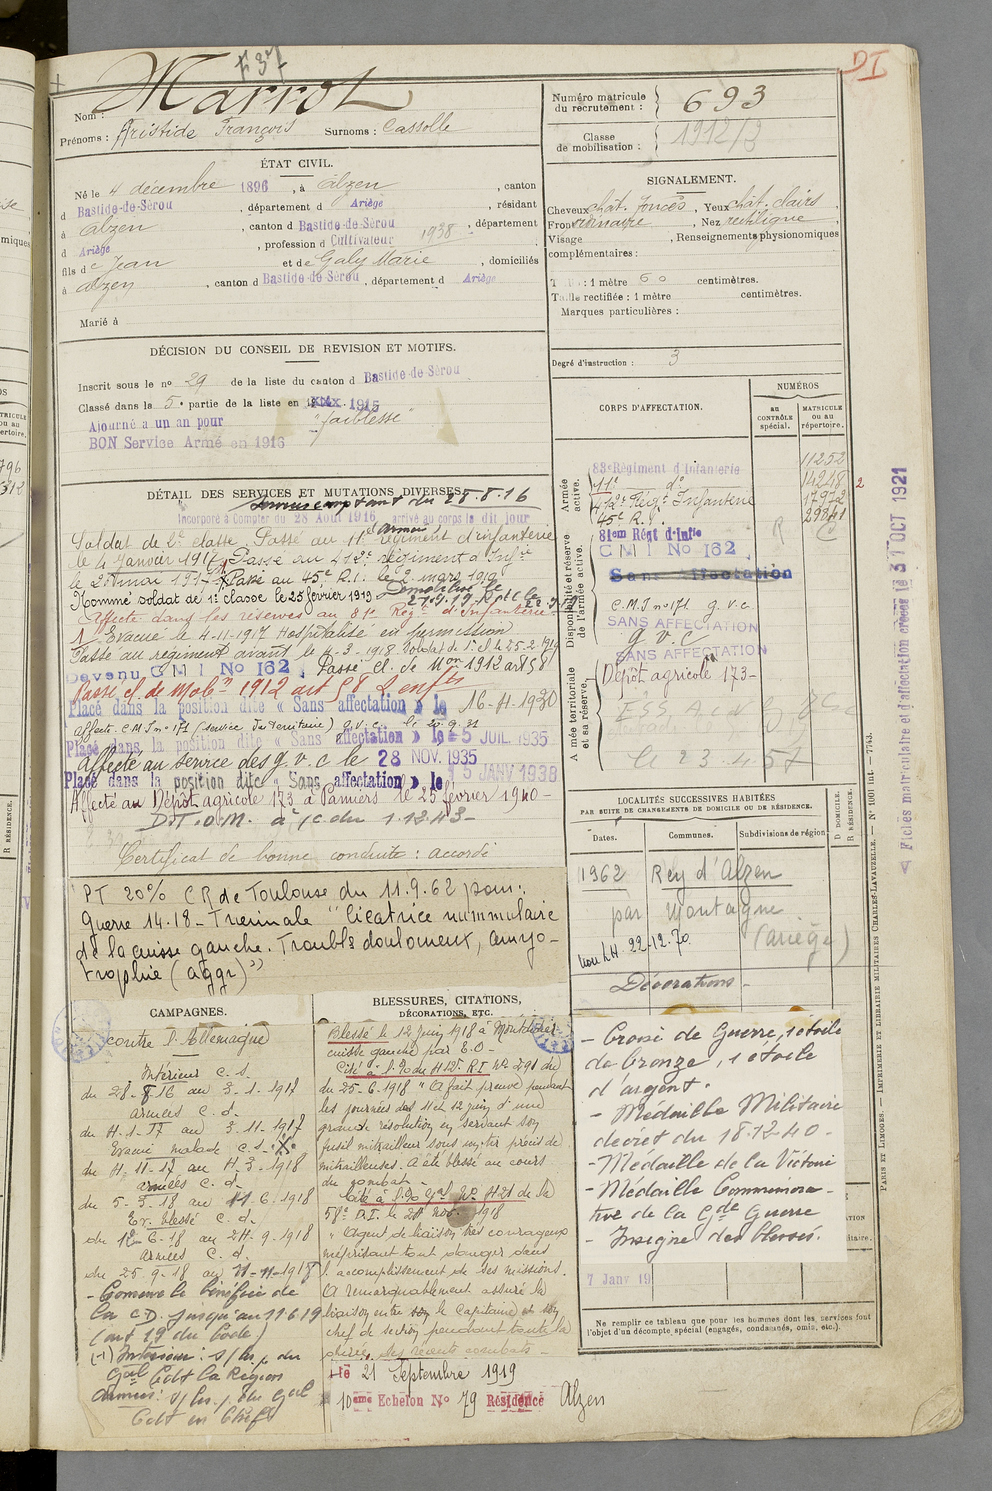 F 3
DI
Nom : Marrot
Prénoms : Aristide François Surnoms : Cassolle
Numéro matricule du recrutement : 693
Classe de mobilisation : 1912/3
ÉTAT CIVIL.
Né le 4 décembre 1896, à Alzen, canton
d Bastide-de-Sérou, département d Ariège, résidant
à Alzen, canton d Bastide-de-Sérou 1938, département
d Ariège, profession d Cultivateur
fils de Jean et de Galy Marie, domiciliés
à Alzen, canton d Bastide-de-Sérou, département d Ariège
Marié à
SIGNALEMENT.
Cheveux chât. foncés, Yeux chât. clairs,
Front ordinaire, Nez rectiligne,
Visage , Renseignements physionomiques
complémentaires :
Taille : 1 mètre 60 centimètres.
Taille rectifiée : 1 mètre centimètres.
Marques particulières :
Degré d'instruction : 3
DÉCISION DU CONSEIL DE REVISION ET MOTIFS.
Inscrit sous le no 29 de la liste du canton d Bastide-de-Sérou
Classé dans la 5e partie de la liste en 1915
Ajourné à un an pour "faiblesse"
BON Service Armé en 1916
DÉTAIL DES SERVICES ET MUTATIONS DIVERSES.
28.8.16
Incorporé à Compter du 28 Août 1916 arrivé au corps le dit jour
Soldat de 2e classe. Passé au 11e régiment d'infanterie
le 4 Janvier 1917. Passé au 412e régiment d'Infie
le 2 mai 1917. Passé au 45e R.I. le 2 mars 1919
Nommé soldat de 1e classe le 25 février 1919 Démobilisé le
Affecté dans les réserves au 81e Regt d'Infanterie
1 Evacué le 4-11-1917 Hospitalisé en permission
Passé au régiment avant le 4-3-1918. Soldat de 1e cl. le 25-2-1919
Devenu C M I No 162, Passé cl. de Mon 1912 art 58
Passé cl. de Mobon 1912 art 58 2 enfts
Placé dans la position dite « Sans affectation » le 16-11-1930
Affecté C.M.I no 171 (service du territoire) g.v.c. le 20.9.31
Placé dans la position dite « Sans affectation » le 5 JUIL. 1935
Affecté au service des g.v.c le 28 NOV. 1935
Placé dans la position dite « Sans affectation » le 15 JANV 1938
Affecté au Dépôt agricole 173 à Pamiers le 25 février 1940 -
D.T.O.M. à /c du 1.12.43-
Certificat de bonne conduite : accordé
PT 20% CR de Toulouse du 11.9.62 pour :
Guerre 14-18 - Trentenale "Cicatrice nummulaire
de la cuisse gauche. Troubles douloureux, amyo-
trophie (aggr)"
CORPS D'AFFECTATION.
NUMÉROS
au CONTRÔLE spécial.
MATRICULE ou au répertoire.
Armée active.
83e Régiment d'Infanterie 11252
11e do 14248
412e Régt Infanterie
45e R.I. 29841
Disponibilité et réserve de l'armée active.
81em Régt d'Infie
C M I No 162
Sans Affectation
C.M.I no 171 g.v.c.
SANS AFFECTATION
g.v.c
SANS AFFECTATION
Armée territoriale et sa réserve.
Dépôt agricole 173-
le 23.4.57
LOCALITÉS SUCCESSIVES HABITÉES
PAR SUITE DE CHANGEMENTS DE DOMICILE OU DE RÉSIDENCE.
Dates. Communes. Subdivisions de région.
D DOMICILE.
R RÉSIDENCE.
1962 Rey d'Alzen
par Montagne
(Ariège)
22-12-70
Décorations -
- Croix de Guerre, 1 étoile
de bronze, 1 étoile
d'argent.
- Médaille Militaire
décret du 18.12.40-
- Médaille de la Victoire
- Médaille Commémora-
tive de la Gde Guerre
- Insigne des blessés.
7 Janv 19
Ne remplir ce tableau que pour les hommes dont les services font
l'objet d'un décompte spécial (engagés, condamnés, omis, etc.).
CAMPAGNES.
contre l'Allemagne
Intérieur c. s.
du 28-8-16 au 3-1-1917
armées c. d.
du 4-1-17 au 3-11-1917
Evacué malade c. s.
du 4-11-17 au 4-3-1918
armées c. d.
du 5-3-18 au 11-6-1918
Ev. blessé c. d.
du 12-6-18 au 24-9-1918
armées c. d.
du 25-9-18 au 11-11-1918
- Conserve le bénéfice de
la C.D. jusqu'au 11 6 19
(art 19 du Code)
(-1) Intérieur : s/ les p. du
Gal Cdt la Région
Armées : s/ les p. du Gal
Cdt en Chef
BLESSURES, CITATIONS,
DÉCORATIONS, ETC.
Blessé le 12 juin 1918 à
cuisse gauche par E.O -
Cité à l'o. du 412e R.I. No 291 du
du 25-6-1918 "A fait preuve pendant
les journées des 11 et 12 juin d'une
grande résolution en servant son
fusil mitrailleur sous un tir précis de
mitrailleuses. A été blessé au cours
du combat -
Cité à l'o. gal No 421 de la
58e D.I. le 20 nov. 1918
"Agent de liaison très courageux
méprisant tout danger dans
l'accomplissement de ses missions.
A remarquablement assuré la
liaison entre le Capitaine et son
chef de section pendant toute la
durée des récents combats -
le 21 Septembre 1919
10eme Echelon No 79 Résidence Alzen
« Fiches matriculaire et d'affectation créées le 31 OCT 1921
PARIS ET LIMOGES. — IMPRIMERIE ET LIBRAIRIE MILITAIRES CHARLES-LAVAUZELLE. — No 1001 int. — 7743.